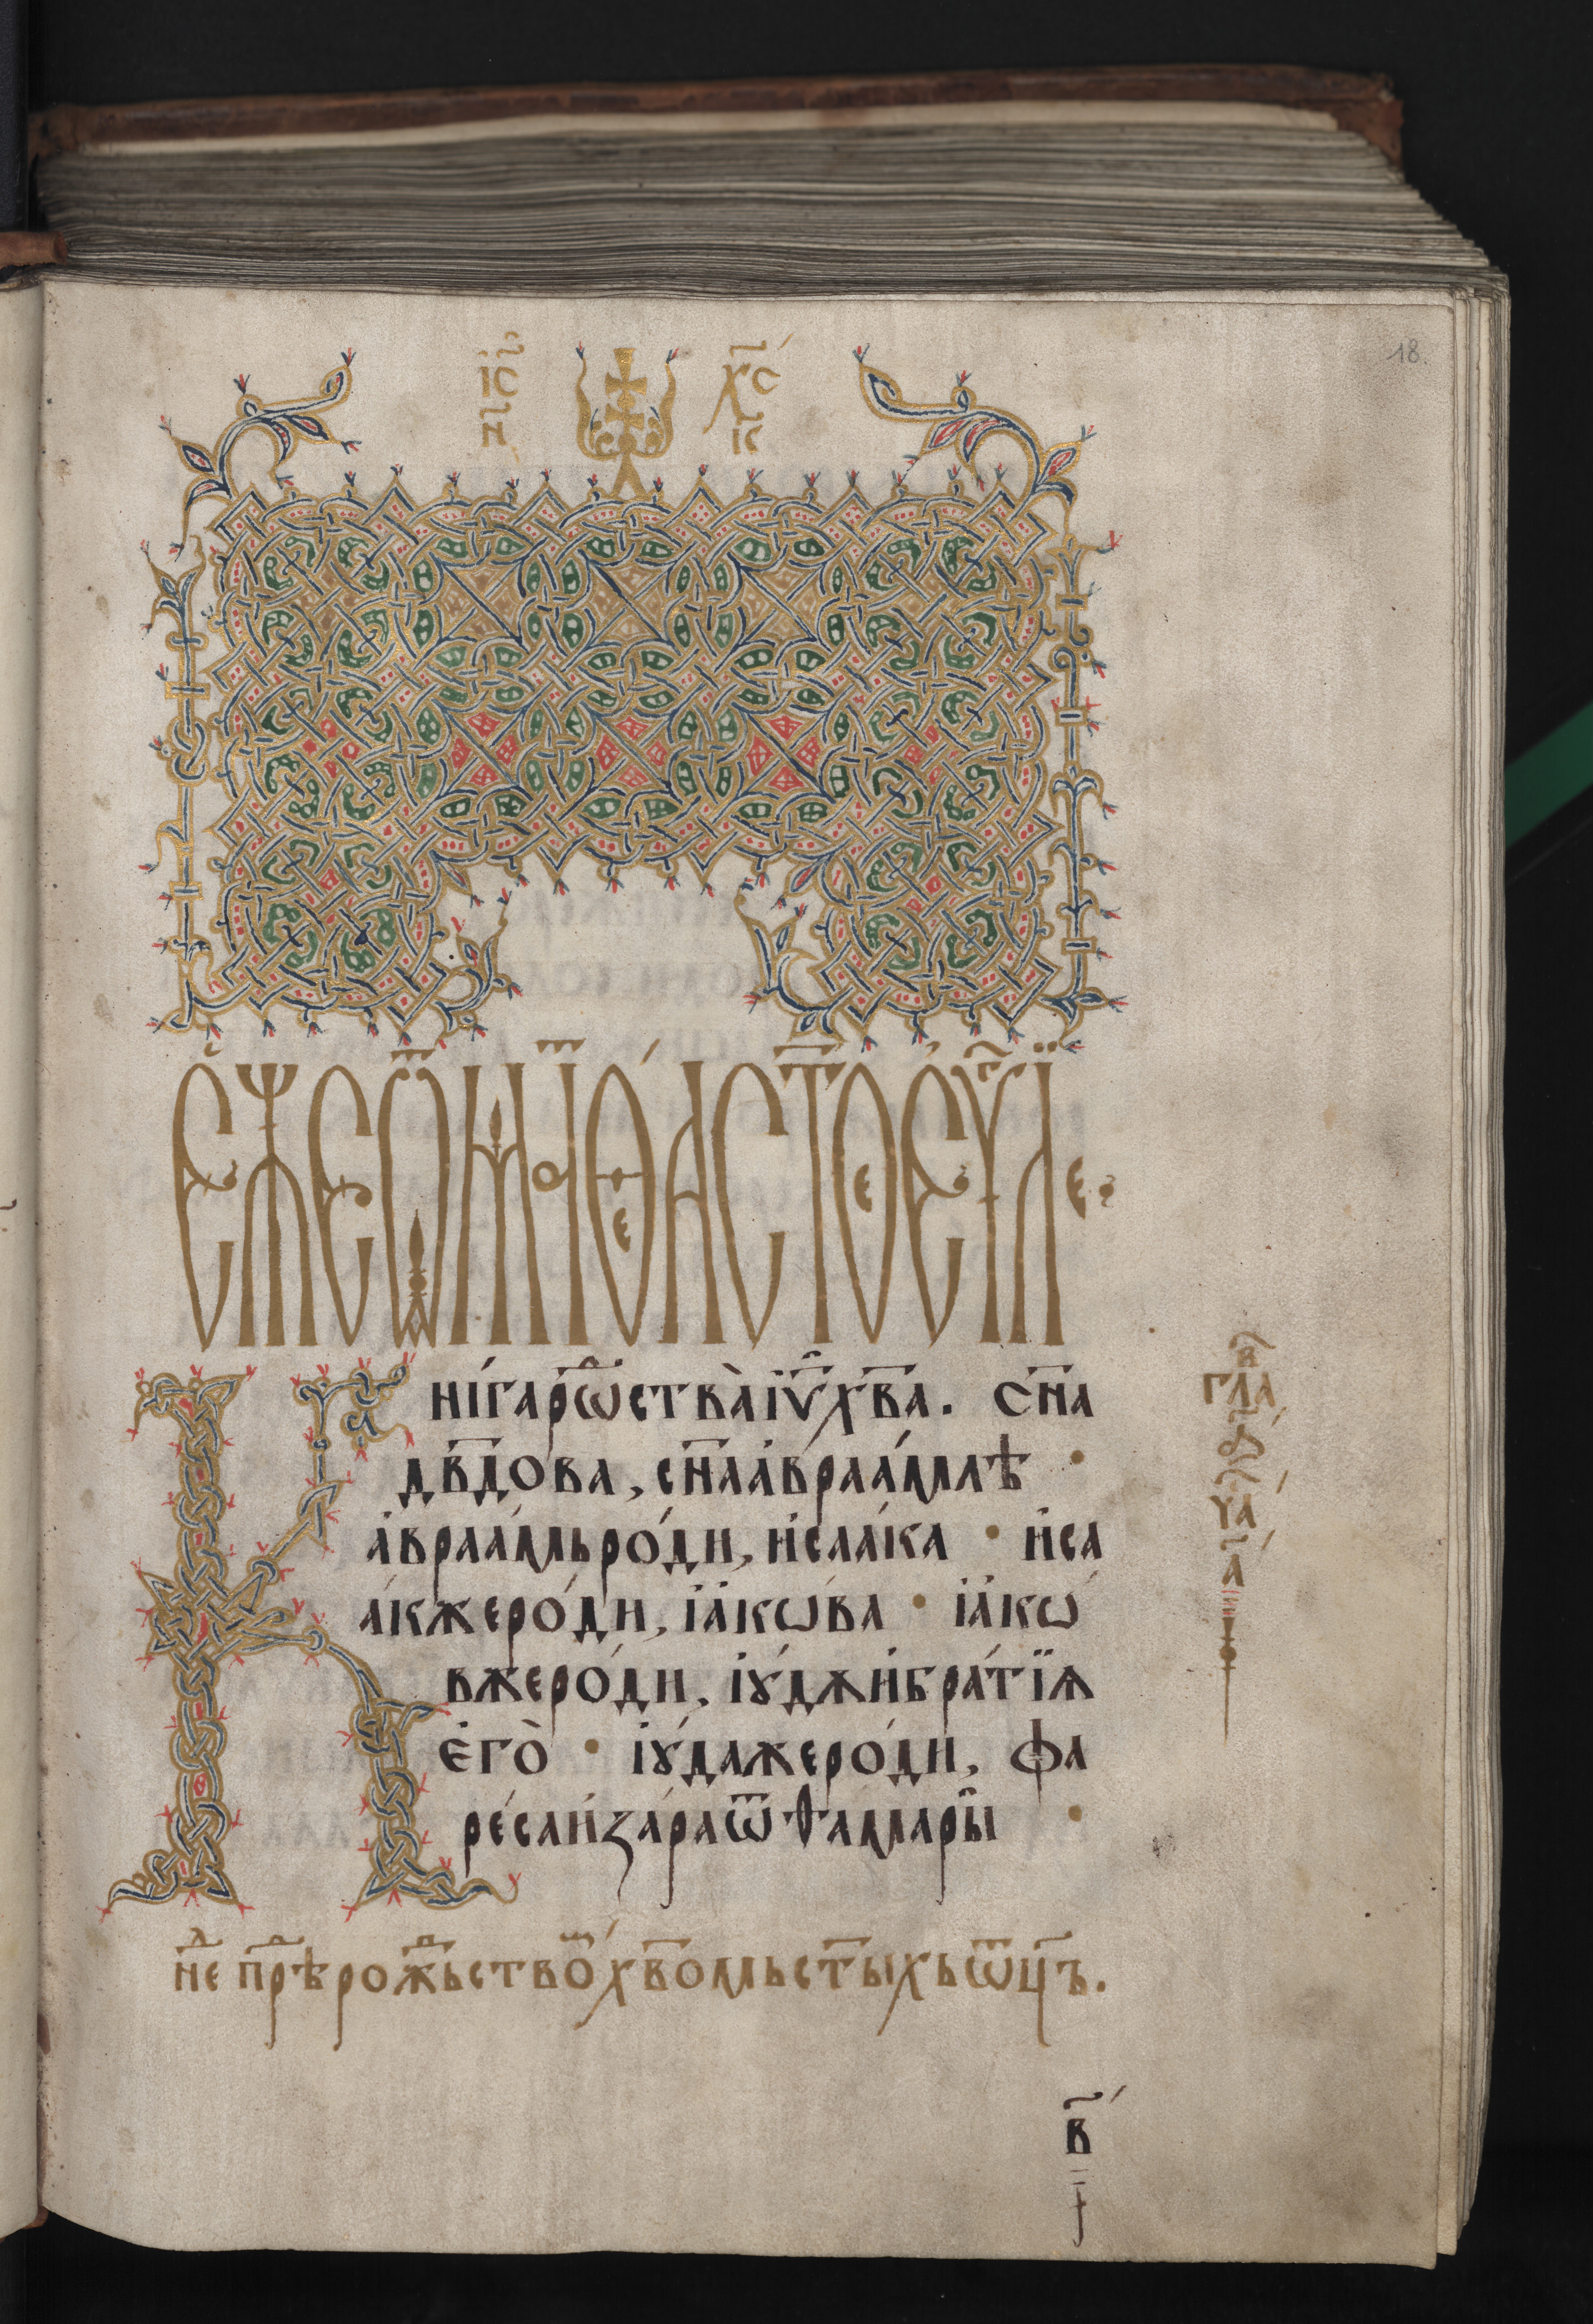 18.
І҃С Х҃С
Н҃И К҃
Е́ЖЕ Ѿ МАТѲЕА СТ҃ОЕ ЕѴ҃Лїе
Книга рѡⷣства̀ іѵ҃ хв҃а. сн҃а
дв҃дова, сн҃а авраа́млѣ ·
авраа́мь ро́ди, исаа́ка · иса
а́кже ро́ди, іа́кѡва · іа́кѡ
вже ро́ди, іꙋ́дѫ и бра́тїѧ
его̀ · іꙋ́да же ро́ди, фа
ре́са и за́ра ѿ ѳамары ·
в҃
гла
ꙁа
ча
а҃
нⷣе прⷣѣ рожⷣьство хв҃омь ст҃ыхь ѿц҃ъ.
в҃